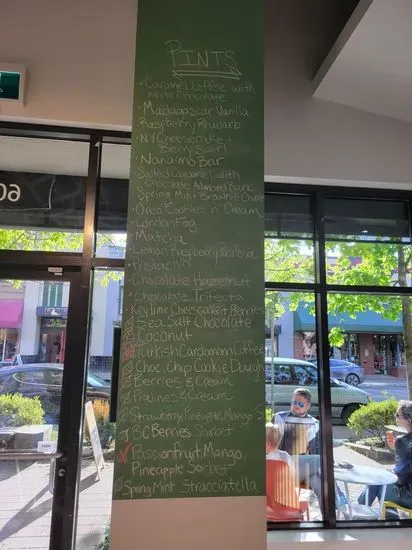 PINTS
• Caramel Coffee with
White Chocolate
• Madagascar Vanilla
Raspberry Rhubarb
• NY Cheesecake +
Berry Swirl
• Nanaimo Bar
Salted Caramel with
Chocolate Almond Bark
Spring Mint Brownie Chunk
Oreo Cookies n Cream
London Fog
Matcha
Lemon Raspberry
Pistachio
Chocolate Hazelnut
• Chocolate Trifecta
Key lime Cheesecake + Berries
Sea Salt Chocolate
Coconut
Turkish Cardamom Coffee
Choc. Chip Cookie Dough
Berries & Cream
Pralines & Cream
Strawberry, Pineapple, Mango
BC Berries Sorbet
Passionfruit Mango
Pineapple Sorbet
Spring Mint Stracciatella